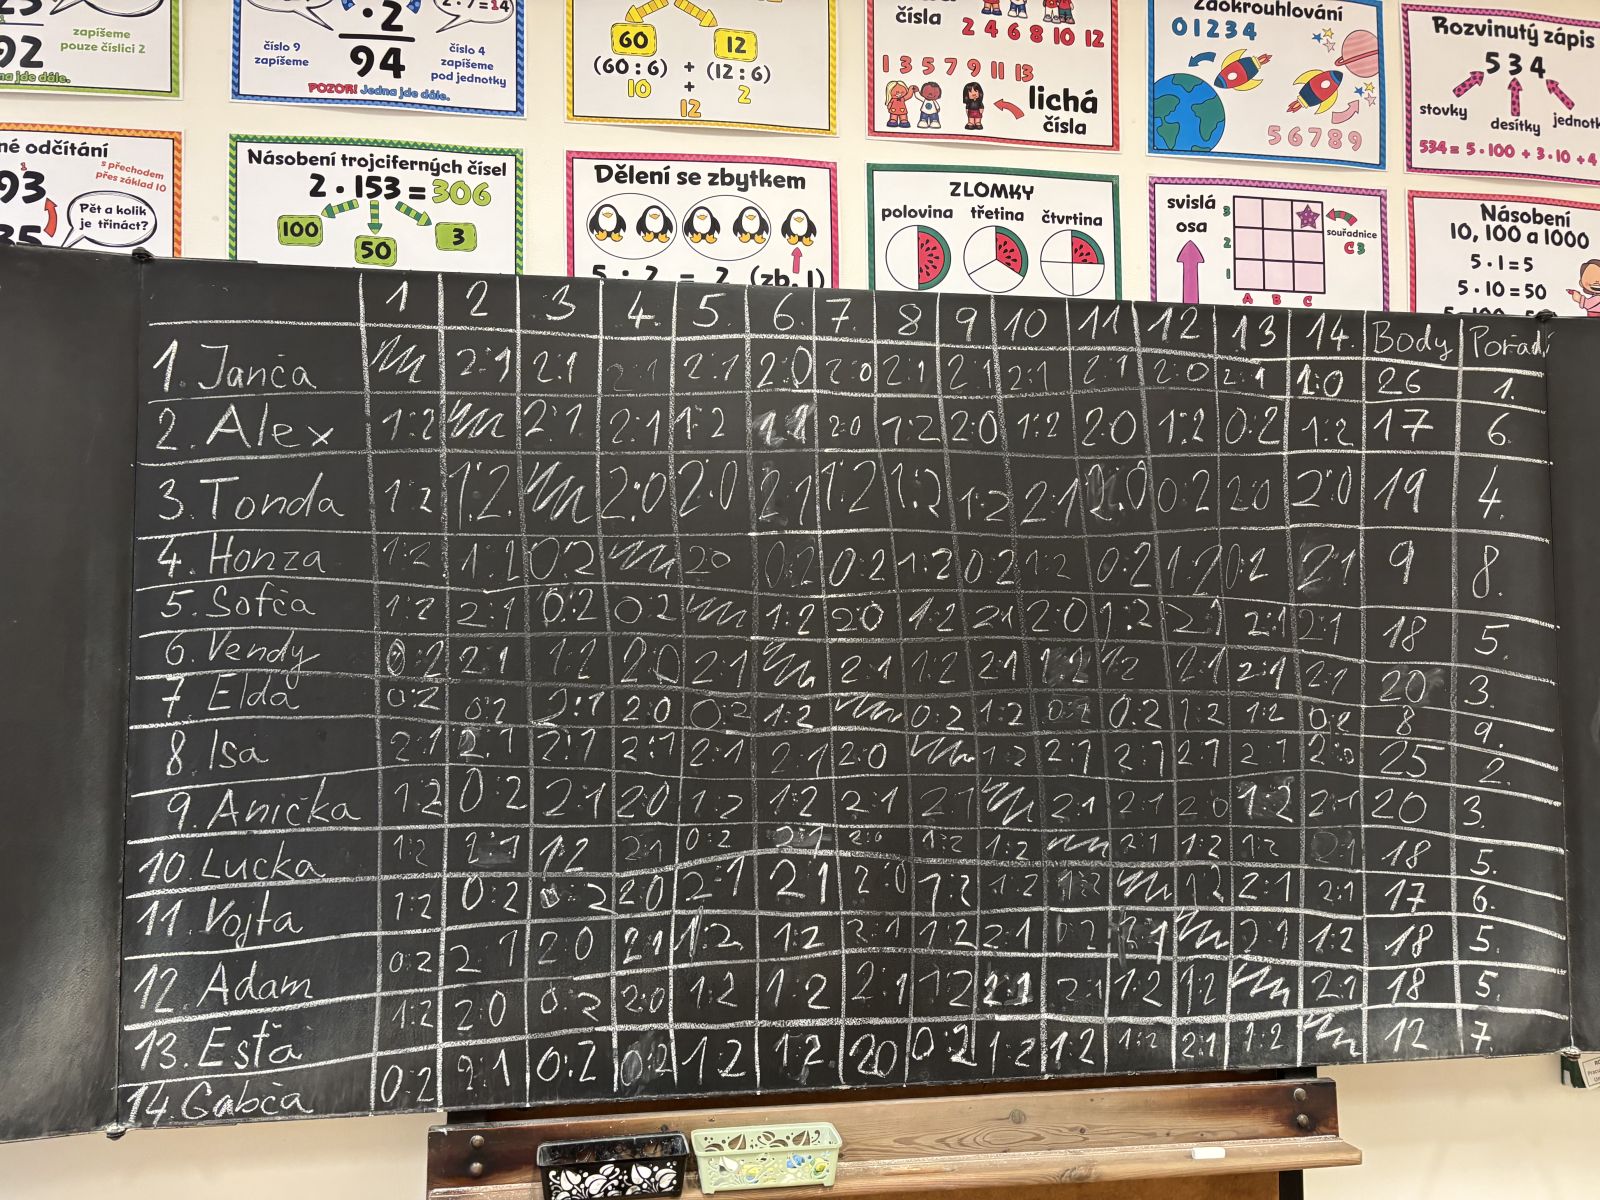 zapíšeme
pouze číslici 2
92
na jde dále.
číslo 9
zapíšeme
· 2
94
číslo 4
zapíšeme
pod jednotky
2 · 7 = 14
POZOR! Jedna jde dále.
60 12
(60 : 6) + (12 : 6)
10 + 2
12
čísla
2 4 6 8 10 12
1 3 5 7 9 11 13
lichá
čísla
Zaokrouhlování
0 1 2 3 4
5 6 7 8 9
Rozvinutý zápis
534
stovky
desítky
jednotk
534 = 5 · 100 + 3 · 10 + 4
né odčítání
s přechodem
přes základ 10
93
Pět a kolik
je třináct?
35
Násobení trojciferných čísel
2 · 153 = 306
100 50 3
Dělení se zbytkem
5 : 2 = 2 (zb. 1)
ZLOMKY
polovina třetina čtvrtina
svislá
osa
3
2
1
A B C
souřadnice
C3
Násobení
10, 100 a 1000
5 · 1 = 5
5 · 10 = 50
1 2 3 4. 5 6. 7. 8 9 10 11 12 13 14. Body Pořadí
1. Janča 2:1 2:1 2:1 2:1 2:0 2:0 2:1 2:1 2:1 2:1 2:0 2:1 1:0 26 1.
2. Alex 1:2 2:1 2:1 1:2 1:2 2:0 1:2 2:0 1:2 2:0 1:2 0:2 1:2 17 6.
3. Tonda 1:2 1:2 2:0 2:0 2:1 1:2 1:2 1:2 2:1 2:0 0:2 2:0 2:0 19 4.
4. Honza 1:2 1:2 0:2 2:0 0:2 0:2 1:2 0:2 1:2 0:2 1:2 0:2 2:1 9 8.
5. Sofča 1:2 2:1 0:2 0:2 1:2 2:0 1:2 2:1 2:0 1:2 2:1 2:1 2:1 18 5.
6. Vendy 0:2 2:1 1:2 2:0 2:1 2:1 1:2 2:1 1:2 1:2 2:1 2:1 2:1 20 3.
7. Elda 0:2 0:2 2:1 2:0 0:2 1:2 0:2 1:2 0:2 0:2 1:2 1:2 0:2 8 9.
8. Isa 2:1 2:1 2:1 2:1 2:1 2:1 2:0 1:2 2:1 2:1 2:1 2:1 2:0 25 2.
9. Anička 1:2 0:2 2:1 2:0 1:2 1:2 2:1 2:1 2:1 2:1 2:0 1:2 2:1 20 3.
10. Lucka 1:2 2:1 1:2 2:1 0:2 2:1 2:0 1:2 1:2 2:1 1:2 1:2 2:1 18 5.
11. Vojta 1:2 0:2 0:2 2:0 2:1 2:1 2:0 1:2 1:2 1:2 1:2 2:1 2:1 17 6.
12. Adam 0:2 2:1 2:0 2:1 1:2 1:2 2:1 1:2 2:1 0:2 2:1 2:1 1:2 18 5.
13. Esťa 1:2 2:0 0:2 2:0 1:2 1:2 2:1 1:2 2:1 2:1 1:2 1:2 2:1 18 5.
14. Gabča 0:2 2:1 0:2 0:2 1:2 1:2 2:0 0:2 1:2 1:2 1:2 2:1 1:2 12 7.